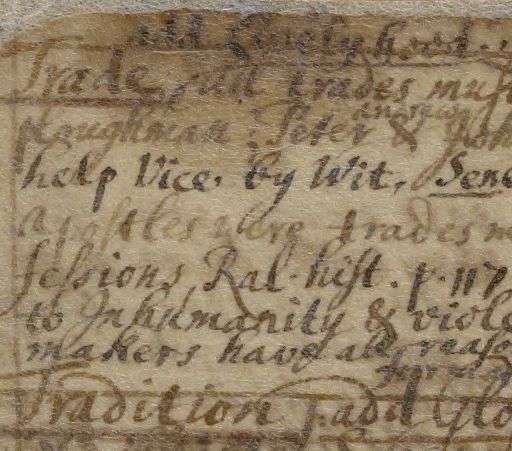 add Lively hood.
Trade, all trades must
ploughman. Peter & John
help Vice, by Wit, Sene
Apostles were trades m
sessions, Ral. hist. p. 117
to Inhumanity & viole
makers have all reaso
Tradition, add Glo